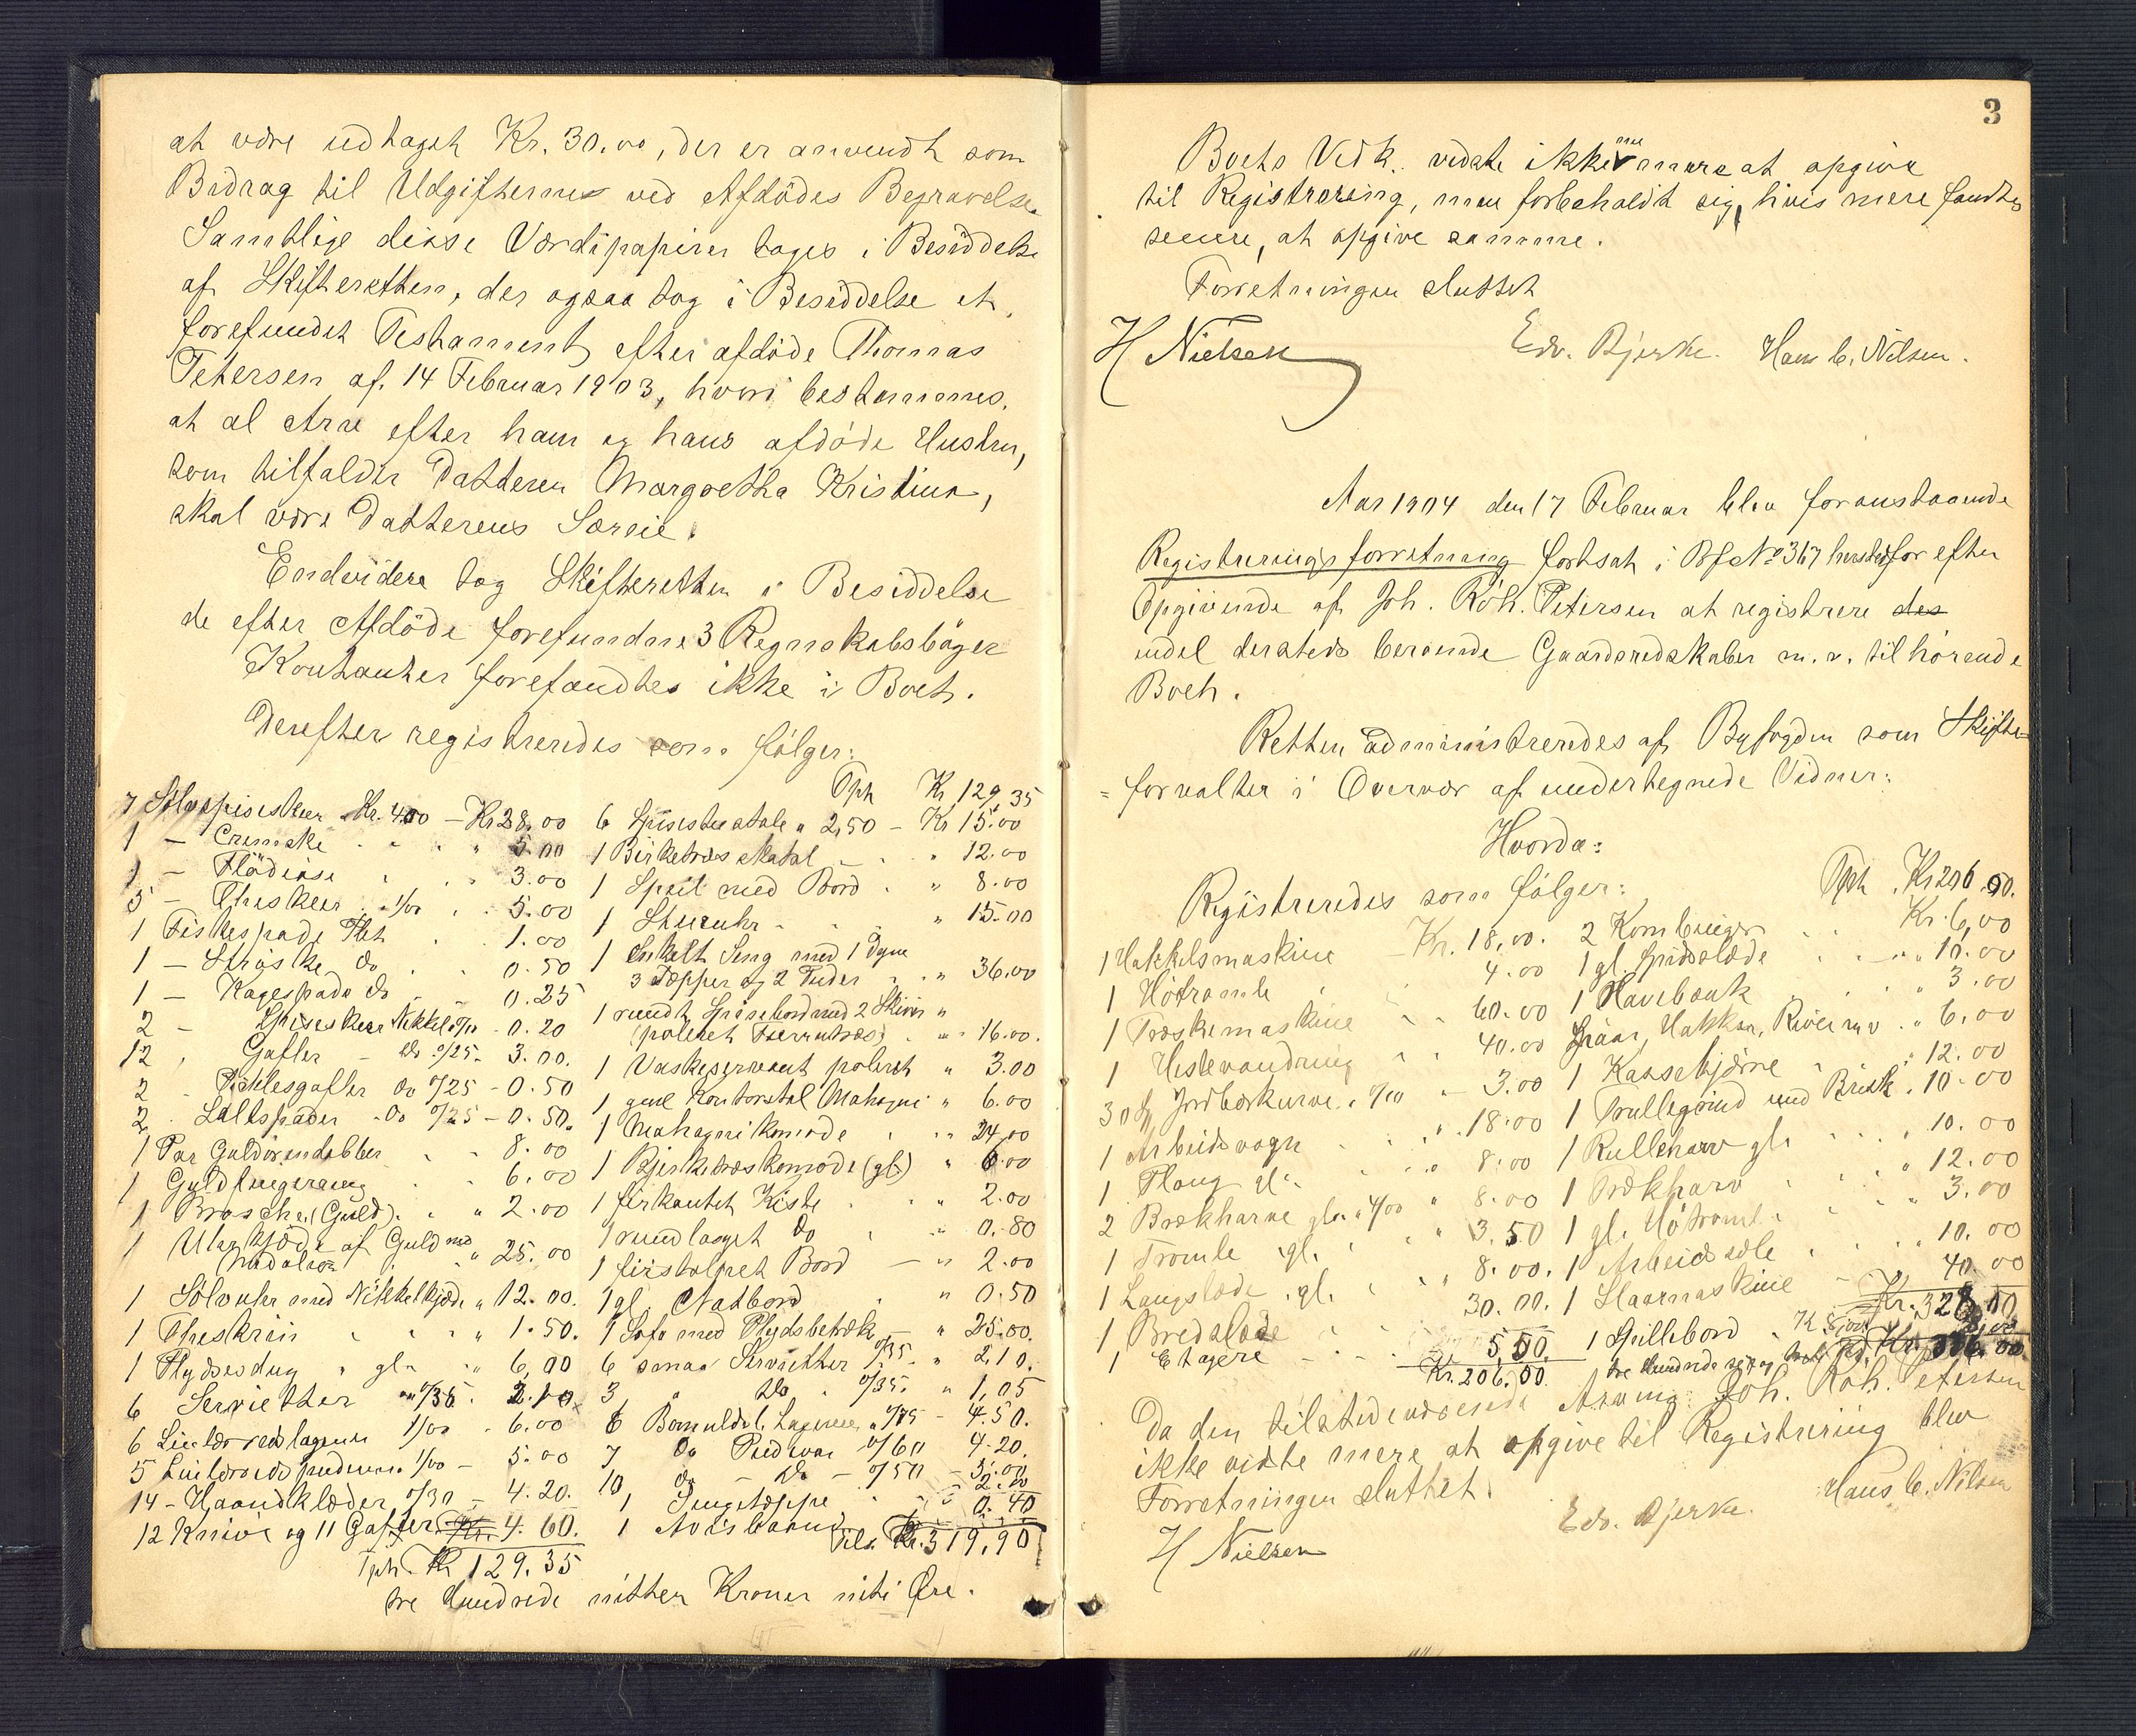 at være udtaget Kr. 30.00, der er anvendt som
Bidrag til Udgifterne ved Afdödes Begravelse.
Samtlige disse Værdipapirer toges i Besiddelse
af Skifteretten, der ogsaa tog i Besiddelse et
forefundet Testament efter afdöde Thomas
Petersen af 14 Februar 1903, hvori bestemmes,
at al Arv efter ham og hans afdöde Hustru,
som tilfalder Datteren Margretha Kristine,
skal være Datterens Særeie.
Endvidere tog Skifteretten i Besiddelse
de efter Afdöde forefundne 3 Regnskabsböger
Kontanter forefandtes ikke i Boet.
Derefter registreredes som fölger:
7 Sölvspiseskeer Kr. 4.00 – Kr 28.00
1 – Cremske 5.00
1 – Flödeöse 3.00
5 – Theskeer 1/00 5.00
1 Fiskespade Plet 1.00
1 – Ströske do 0.50
1 – Kagespade do 0.25
2 – Spiseskeer Nikkel 0/10 – 0.20
12 Gafler – do 0/25 – 3.00.
2 Piklesgafler do 0/25 – 0.50
2 Saltspader do 0/25 – 0.50.
1 Par Guldörendobber 8.00
1 Guldfingerring 6.00
1 Brosche (Guld) 2.00
1 Uhrkjæde af Guld med
Medalion 25.00
1 Sölvuhr med Nikkelkjæde 12.00.
1 Theskrin 1.50.
1 Plydsesdug gl. 6,00
6 Servietter 0/35 2.10
6 Linlærredslagener 1/00 6.00
5 Linlærreds pudevar 1/00 – 5.00
14 – Haandklæder 0/30 – 4.20.
12 Knive og 11 Gafler 4.60.
Tph. Kr 129.35
Tph Kr 129 35
6 Spisestuestole 2,50 – Kr 15.00
1 Birketræs skatol 12.00
1 Speil med Bord 8.00
1 Stueuhr 15.00
1 Enkelt Seng med 1 Dyne
3 Tæpper og 2 Puder 36.00
1 rundt Spisebord med 2 Skiver
(poleret Furrutræs) 16.00.
1 Vaskeservant poleret 3.00
1 gml Kontorstol Mahogni 6.00
1 Mahognikomode 24,00
1 Bjerketræskomode (gl.) 6.00
1 firkantet Kiste 2.00
1 rundlaaget do 0.80
1 firstolpet Bord 2.00
1 gl. Natbord 0.50
1 Sofa med Plydsbetræk 25.00.
6 smaa Servietter 0/35 2,10.
3 Do 0/35. 1,05
6 Bomulds l. Lagener 0/75 – 4.50.
7 do Pudevar 0/60 4.20.
10 do – do – 0/50 – 5.00
1 Sengetæppe 2.00
1 Avisbaand 0.40
Tils. Kr. 319,90
tre Hundrede nitten Kroner niti Öre.
3
Boets Vedk. vidste ikke nu mere at opgive
til Registrering, men forbeholdt sig, hvis mere fandtes
senere, at opgive samme.
Forretningen sluttet
H Nielsen Edv. Bjerke. Hans C. Nilsen.
Aar 1904 den 17 Februar blev foranstaaende
Registreringsforretning fortsat i Bf No 367 hersteds for efter
Opgivende af Joh. Röh. Petersen at registrere des
endel dersteds beroende Gaardsredskaber m.v. tilhörende
Boet.
Retten administreredes af Byfogden som Skifte-
= forvalter i Overvær af undertegnede Vidner:
Hvorda:
Registreredes som fölger:
1 Hakkelsmaskine – Kr. 18,00.
1 Hötromle 4.00
1 Træskemaskine 60.00
1 Hestevandring 40.00
30 Jordbærkurve 0/10 – 3.00
1 Arbeidsvogn 18.00
1 Ploug gl. 8.00
2 Brækharve gl. 4/00 8.00
1 Tromle gl. 3.50
1 Langslæde gl. 8.00.
1 Bredslæde 30.00.
1 Etagere 5.50.
Kr. 206,00.
Tph Kr 206.00.
2 Kornbinger Kr. 6,00
1 gl. Spidsslæde 10.00
1 Hövlbænk 3.00
Ljaar, Hakker, River m v 6.00
1 Kassekjærre 12.00
1 Trullegrind med Brisk 10.00
1 Rulleharv gl. 10.00
1 Trækharv 12.00
1 gl. Hötromle 3.00
1 Arbeidssele 10.00
1 Slaamaskine 40.00
Kr. 328,00
1 Spillebord K 8,00
Da den tilstedeværende Arving Joh. Röh. Petersen
ikke vidste mere at opgive til Registrering blev
Forretningen sluttet.
H Nielsen Edv. Bjerke. Hans C. Nilsen